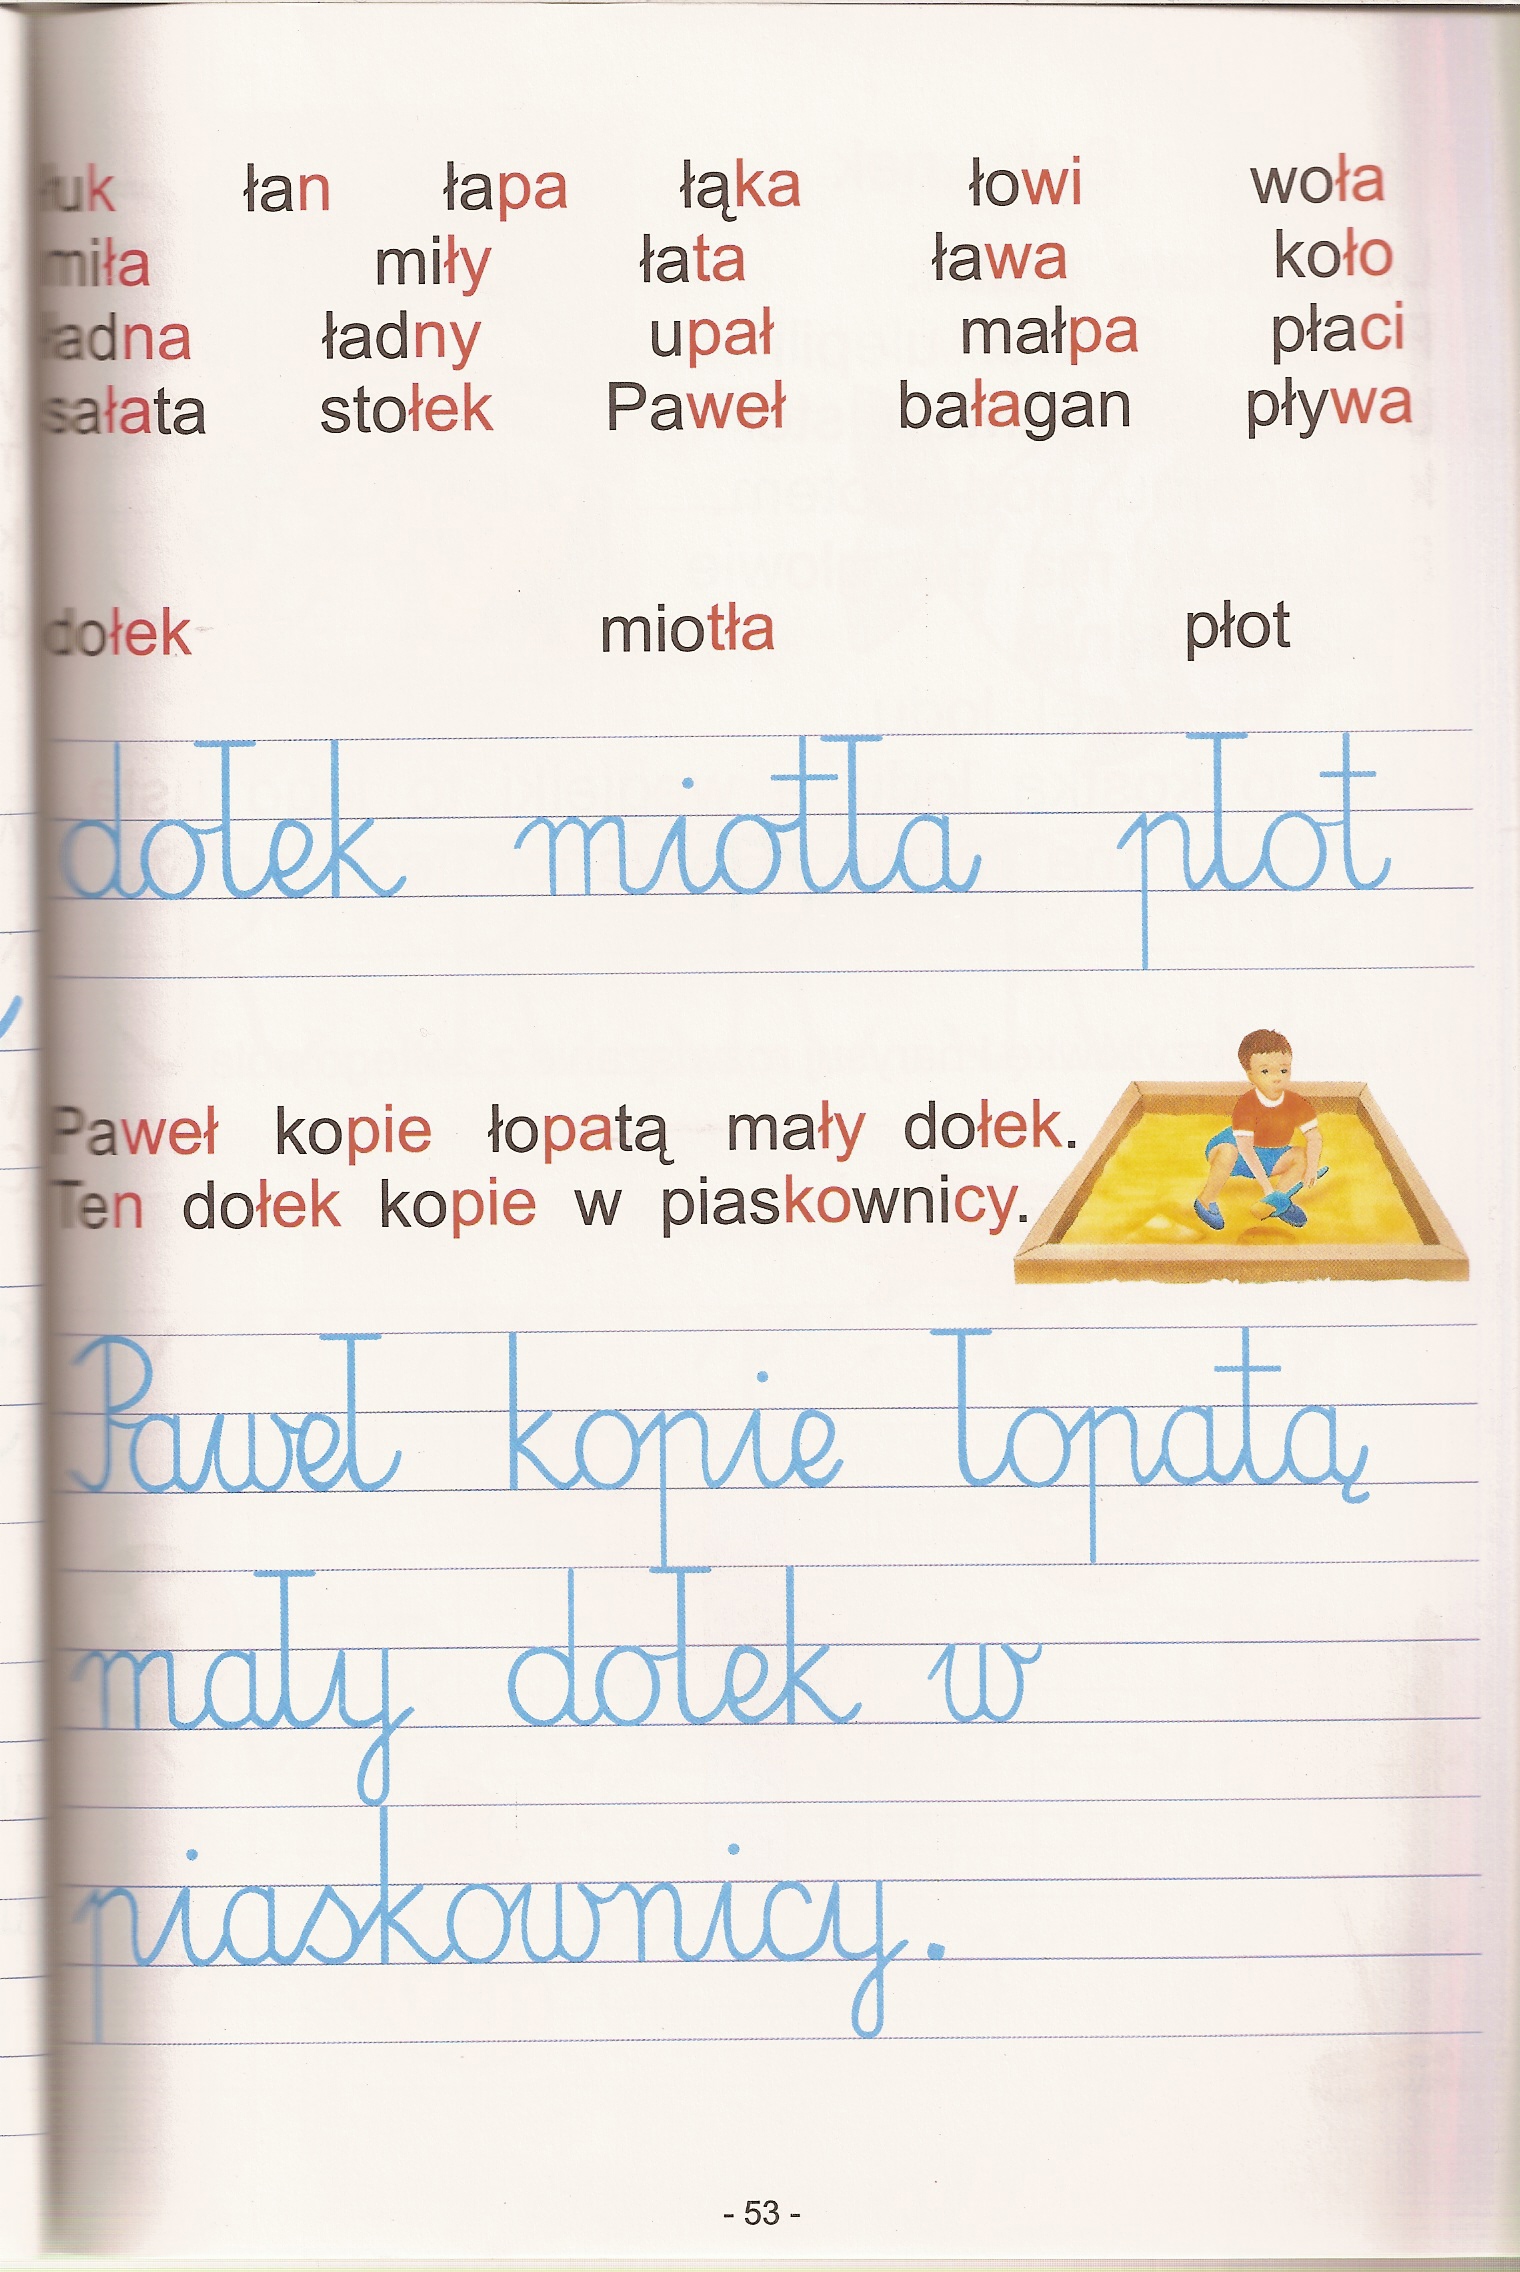 łuk łan łapa łąka łowi woła
miła miły łata ława koło
ładna ładny upał małpa płaci
sałata stołek Paweł bałagan pływa
dołek miotła płot
dołek miotła płot
Paweł kopie łopatą mały dołek.
Ten dołek kopie w piaskownicy.
Paweł kopie łopatą
mały dołek w
piaskownicy.
- 53 -